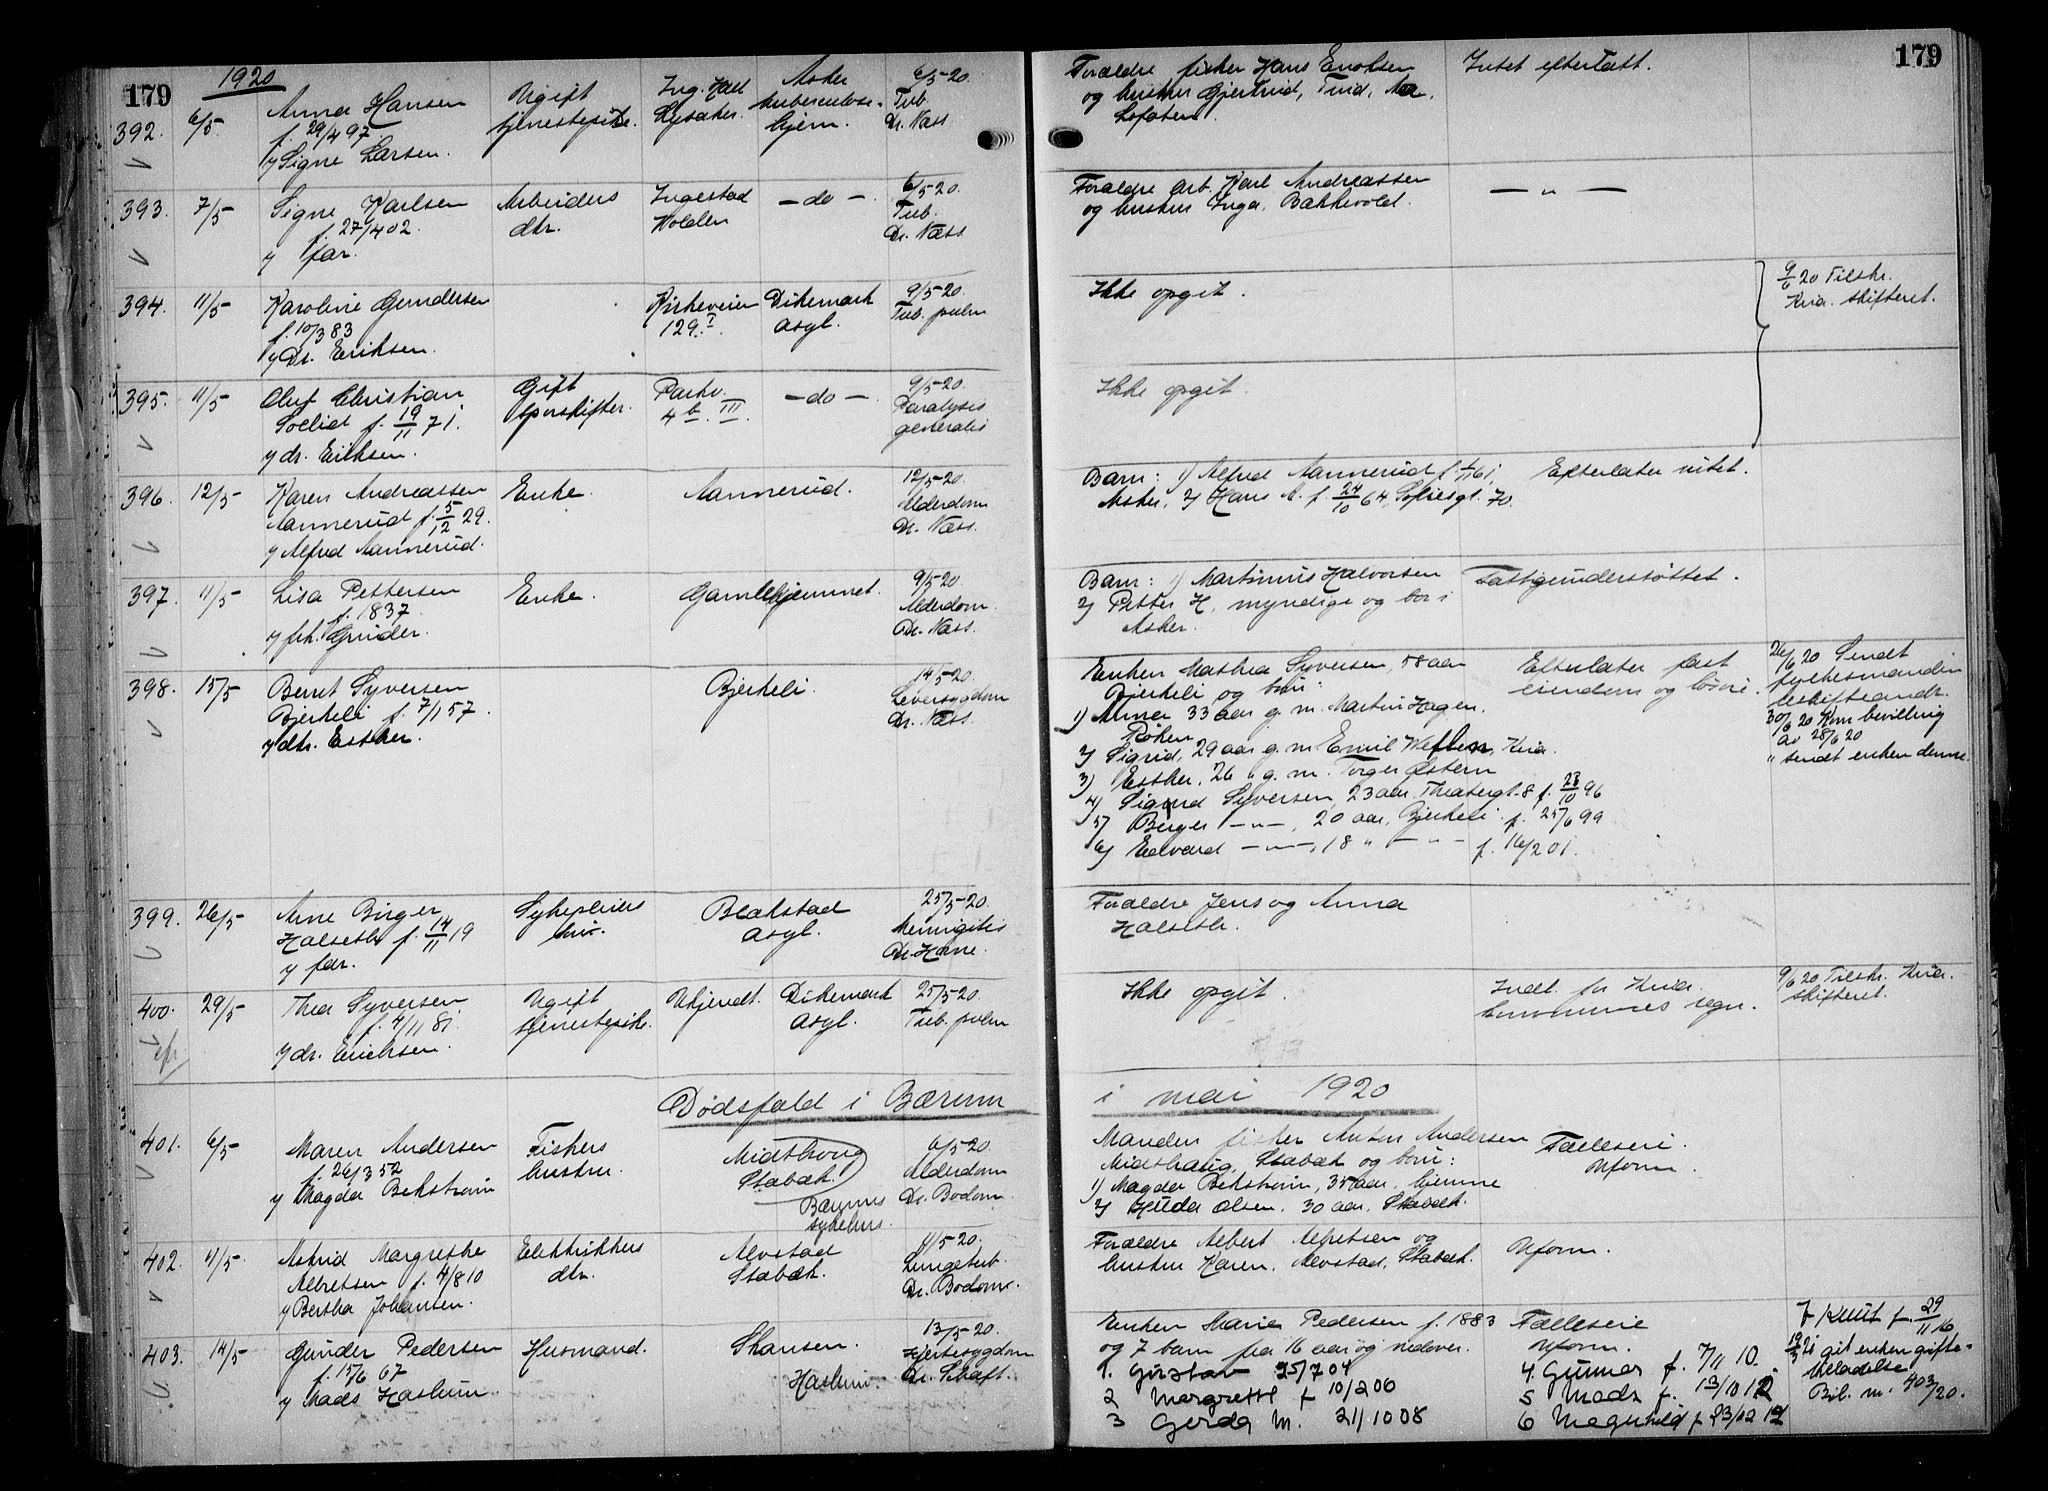 179
1920
392. 6/5. Anna Hansen
f. 29/4 97.
v/ Signe Larsen.
Ugift
tjenestepike.
Ing. Hall
Lysaker.
Asker
tuberculose-
hjem.
6/5-20.
Tub.
Dr. Næss
Forældre fisker Hans Enoksen
og hustru Gjertrud,
Lofoten.
Intet efterlatt.
179
393. 7/5 Signe Karlsen
f. 27/4 02.
v/ far.
Arbeiders
dtr.
Ingestad
Holden
— do —
6/5 20.
Tub.
Dr. Næss.
Forældre arb. Karl Andreassen
og hustru Inga, Bakkevold.
— " —
394. 11/5 Karoline Gundersen
f. 10/3 83
v/ Dr. Eriksen.
Kirkeveien
129. I
Dikemark
asyl.
9/5-20.
Tub. pulm
Ikke opgit.
9/6 20 Tilskr.
Kria. skifteret.
395. 11/5 Oluf Christian
Sollid f. 19/11 71.
v/ dr. Eriksen.
Gift
sporskifter.
Parkv.
4 b. III.
— do —
9/5-20.
Paralysis
generalis
Ikke opgit.
396. 12/5 Karen Andreassen
Aannerud f. 5/12 29.
v/ Alfred Aannerud.
Enke.
Aannerud.
12/5-20.
Alderdom
Dr. Næss.
Barn: 1) Alfred Aannerud f. 1/11 61,
Asker, 2) Hans A. f. 24/10 64, Sofiesgt. 70.
Efterlater intet.
397. 11/5 Lisa Pettersen
f. 1837.
v/ frk. Grinder.
Enke.
Gamlehjemmet.
9/5-20.
Alderdom.
Dr. Næss.
Barn: 1) Martinius Halvorsen
2) Petter H, myndige og bor i
Asker.
Fattigunderstøttet.
398. 15/5 Bernt Syversen
Bjerkeli f. 7/1 57.
v/ dtr. Esther.
Bjerkeli.
14/5-20.
Leversygdom
Dr. Næss.
Enken Mathea Syversen, 58 aar
Bjerkeli og barn:
1) Anna 33 aar g. m. Martin Hagen,
Röken
2) Sigrid, 29 aar g. m Emil Wefler, Kria.
3) Esther, 26 " g. m. Torger Østern
4) Sigurd Syversen, 23 aar, Theatergt. 8, f. 23/10 96
5) Birger — " —, 20 aar, Bjerkeli f. 25/6 99
6) Edvard — " —, 18 " — " — f. 16/2 01.
Efterlater fast
eiendom og løsøre.
26/6 20 Sendt
fylkesmanden
uskifteandr.
30/6 20 Kom bevilling
av 28/6 20
" sendt enken denne.
399. 26/5 Arne Birger
Halseth f. 14/11 19
v/ far.
Sykepleiers
Blakstad
asyl.
25/5-20.
Meningitis
Dr. Horne.
Forældre Jens og Anna
Halseth.
400. 29/5 Thea Syversen
f. 4/11 81.
v/ dr. Erichsen.
Ugift
tjenestepike.
Ukjendt.
Dikemark
asyl.
25/5-20.
Tub. pulm
Ikke opgit.
Indl. for Kria.
kommunes regn.
9/6 20 Tilskr. Kria.
skifteret.
Dødsfald i Bærum
i mai 1920
401. 6/5 Maren Andersen
f. 26/3 52
v/ Magda Bekstrøm
Fiskers
hustru.
Midthaug
Stabæk.
Bærums
sykehus.
6/5-20.
Alderdom
Dr. Bodom.
Manden fisker Anton Andersen
Midthaug, Stabæk og barn:
1) Magda Bekstrøm, 35 aar, hjemme
2) Hilda Olsen, 30 aar, Stabæk.
Fælleseie.
Uform.
402. 11/5. Astrid Margrethe
Albretsen f. 4/8 10
v/ Bertha Johansen.
Elektrikers
dtr.
Alvstad
Stabæk.
11/5-20.
Lungetub.
Dr. Bodom.
Forældre Albert Albretsen og
hustru Karen, Alvstad, Stabæk.
Uform.
403. 14/5 Gunder Pedersen
f. 15/6 67
v/ Mads Haslum.
Husmand.
Skansen.
Haslum.
13/5-20.
Hjertesygdom
Dr. Schaft.
Enken Marie Pedersen f. 1883
og 7 barn fra 16 aar og nedover.
1. Gustav 25/7 04
2 Margrethe f 10/2 06
3 Gerda M. 21/10 08
Fælleseie
Uform.
4. Gunnar f. 7/11 10.
5 Mads f. 13/10 12
6 Magnhild f 23/12 14
7 Knut f. 29/11 16
19/3 21 git enken gifte-
tilladelse
Bil. nr. 403/20.